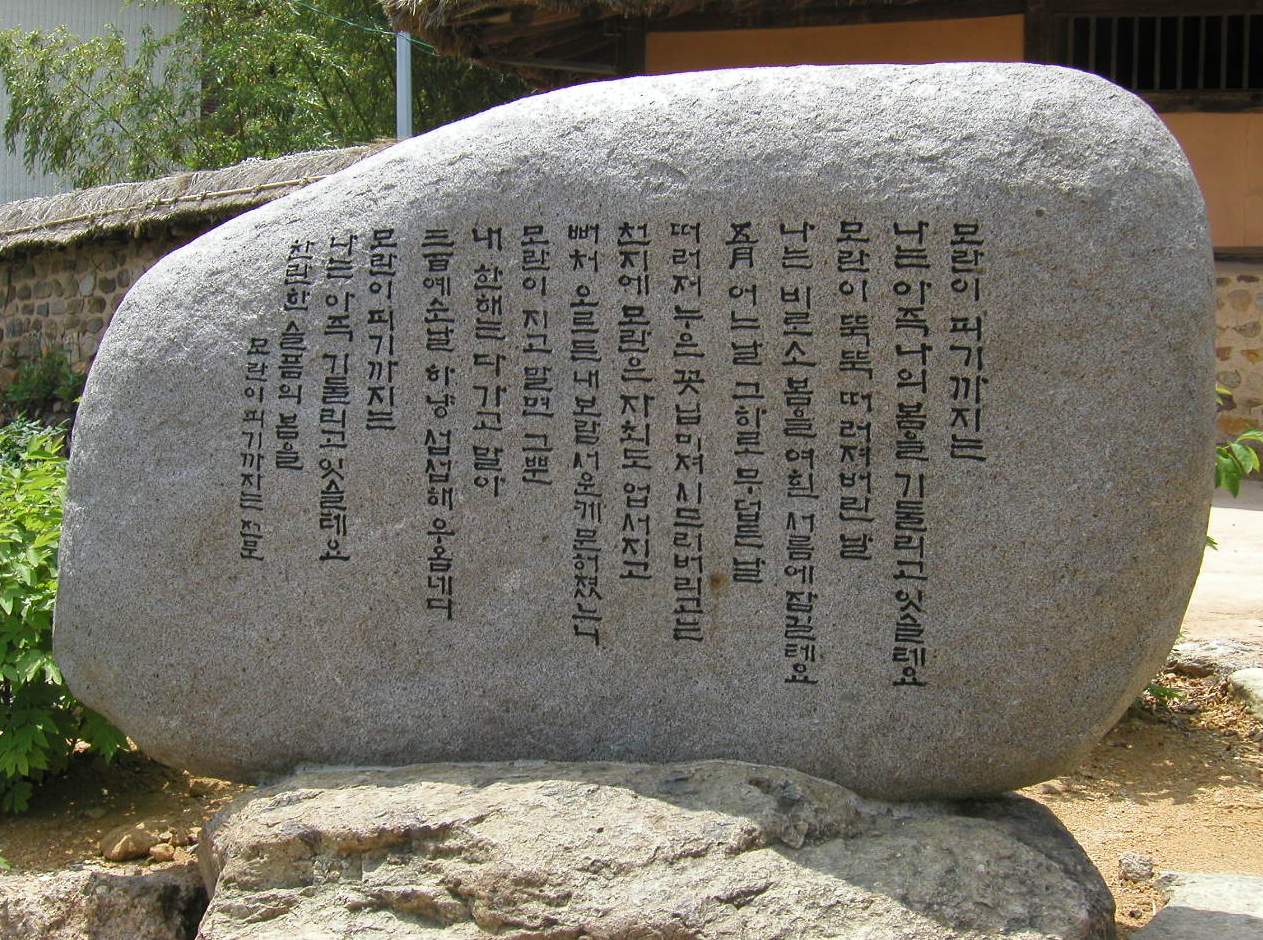 모란이 피기까지는
나는 아즉 나의 봄을 기둘리고 잇슬테요
모란이 뚝뚝 떠러져버린 날
나는 비로소 봄을 여흰 서름에 잠길테요
五月 어느날 그 하로 무덥든 날
떠러져 누은 꽃닙마져 시드러버리고는
천지에 모란은 자최도 업서지고
뻐처 오르든 내 보람 서운케 문허졌느니
모란이 지고 말면 그뿐
내 한해는 다 가고 말아
三百예순날 하냥 섭섭해 우옵네다
모란이 피기까지는
나는 아즉 기둘리고 잇슬테요
찬란한 슬픔의 봄을
모란이 피기까지는